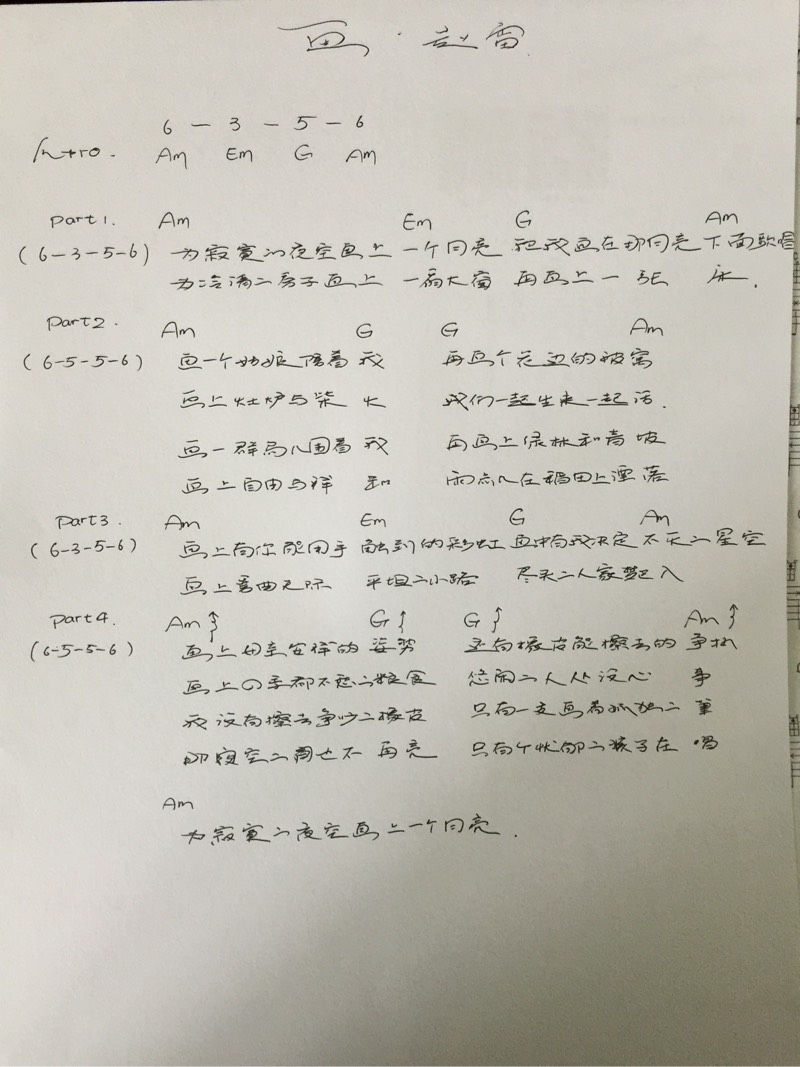 画 · 赵雷
6 — 3 — 5 — 6
Intro. Am Em G Am
Part1. Am Em G Am
(6-3-5-6) 为寂寞的夜空画上 一个月亮 把我画在那月亮 下面歌唱
为冷清的房子画上 一扇大窗 再画上一张 床.
Part2. Am G G Am
(6-5-5-6) 画一个姑娘陪着 我 再画个花边的被窝
画上灶炉与柴 火 我们一起生来一起活.
画一群鸟儿围着 我 再画上绿林和青坡
画上自由与祥 和 雨点儿在稻田上洒落
Part3. Am Em G Am
(6-3-5-6) 画上有你能用手 触到的彩虹 画中有我决定 不灭的星空
画上弯曲无际 平坦的小路 尽头的人家梦已入
Part4. Am G G Am
(6-5-5-6) 画上母亲安祥的 姿势 还有橡皮能擦去的 争执
画上四季都不愁的粮食 悠闲的人从没心 事
我没有擦去争吵的橡皮 只有一支画着孤独的 笔
那夜空的月也不 再亮 只有个忧郁的孩子在 唱
Am
为寂寞的夜空画上一个月亮.